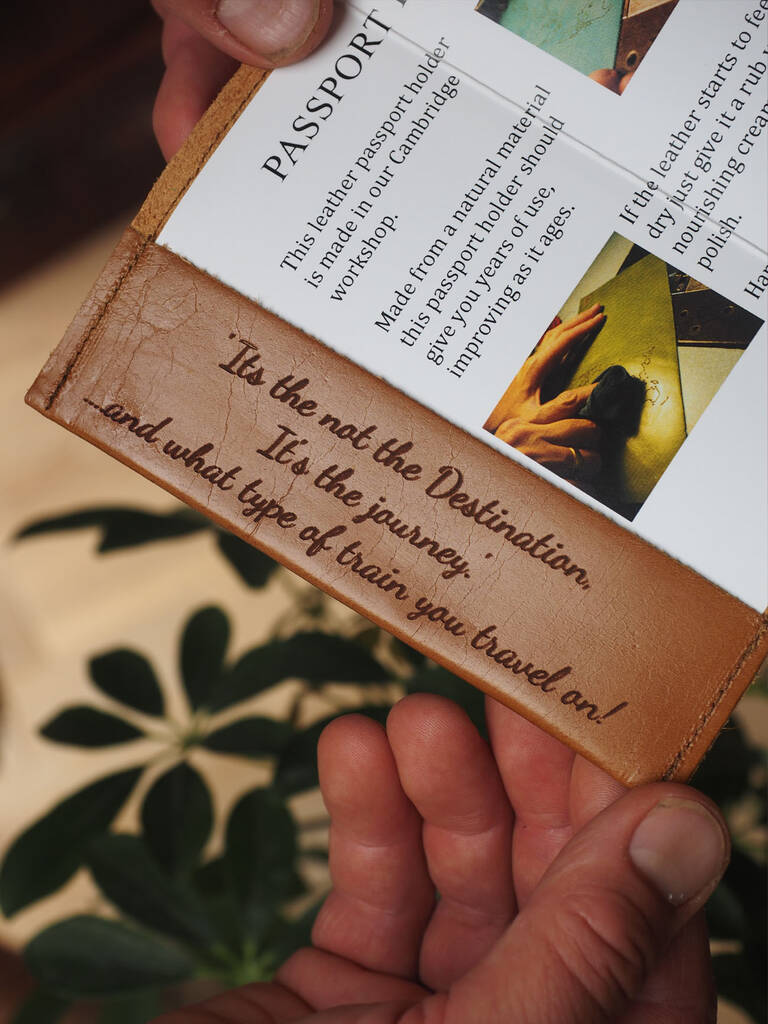 PASSPORT
This leather passport holder
is made in our Cambridge
workshop.
Made from a natural material
this passport holder should
give you years of use,
improving as it ages.
If the leather starts to fee
dry just give it a rub
nourishing crea
polish.
Han
'Its the not the Destination,
It's the journey.'
...and what type of train you travel on!